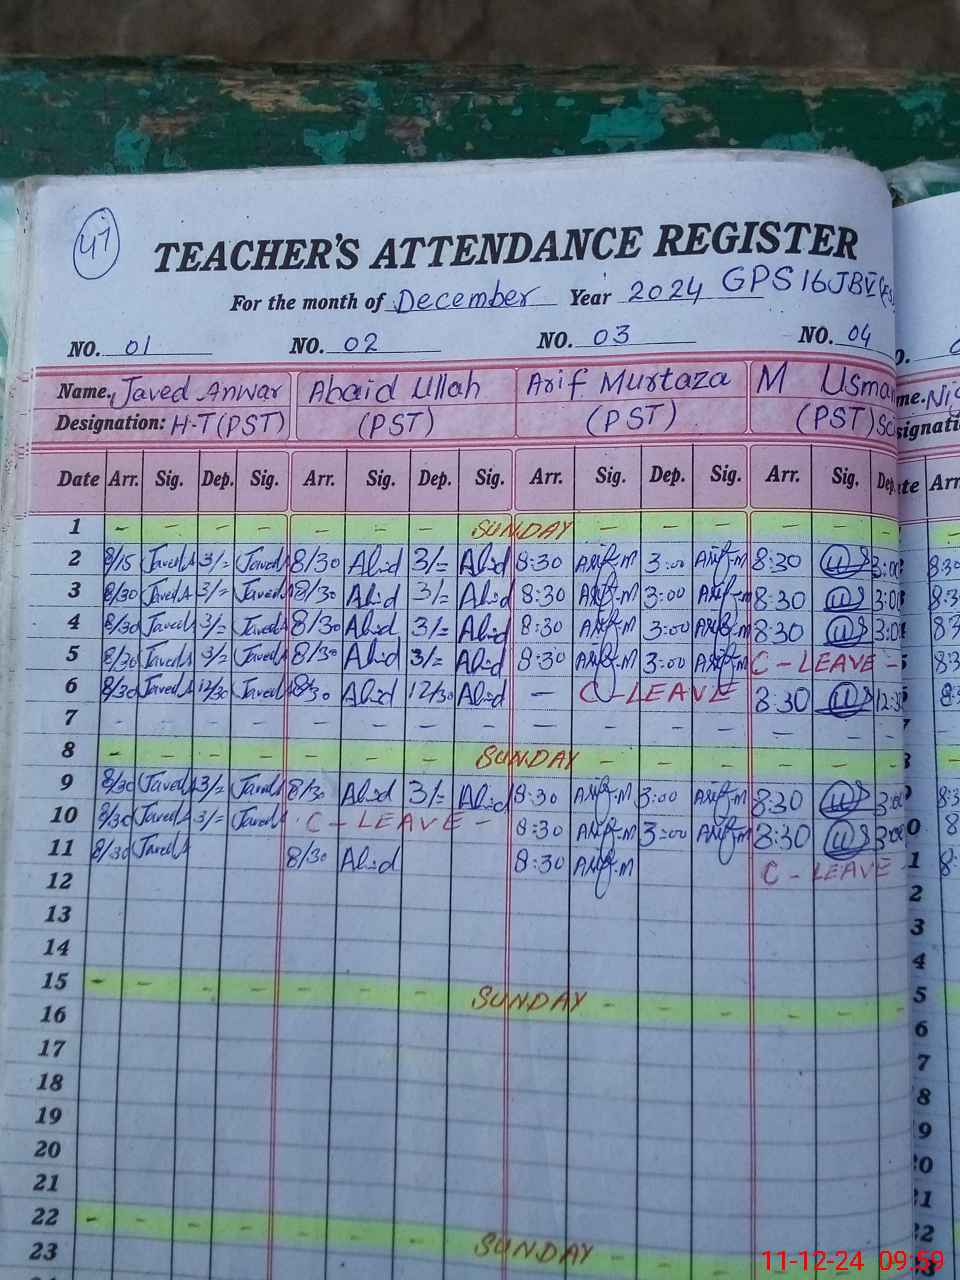 47
TEACHER'S ATTENDANCE REGISTER
For the month of December Year 2024 GPS 16JBV
NO. 01 NO. 02 NO. 03 NO. 04
Name. Javed Anwar Abaid Ullah Arif Murtaza M Usman
Designation: H-T(PST) (PST) (PST) (PST)
Date Arr. Sig. Dep. Sig. Arr. Sig. Dep. Sig. Arr. Sig. Dep. Sig. Arr. Sig. Dep.
1 - - - - - - SUNDAY - - - - - -
2 8/15 Javed A 3/= Javed A 8/30 Abid 3/= Abid 8:30 Arif-M 3:00 Arif-M 8:30 3:00
3 8/30 Javed A 3/= Javed A 8/30 Abid 3/= Abid 8:30 Arif-M 3:00 Arif-M 8:30 3:00
4 8/30 Javed A 3/= Javed A 8/30 Abid 3/= Abid 8:30 Arif-M 3:00 Arif-M 8:30 3:00
5 8/30 Javed A 3/= Javed A 8/30 Abid 3/= Abid 8:30 Arif-M 3:00 Arif-M C - LEAVE -
6 8/30 Javed A 12/30 Javed A 8/30 Abid 12/30 Abid - C-LEAVE 8:30 12:30
7 - - - - - - - - - - - - - -
8 - - - - - - SUNDAY - - - - - -
9 8/30 Javed A 3/= Javed A 8/30 Abid 3/= Abid 8:30 Arif-M 3:00 Arif-M 8:30 3:00
10 8/30 Javed A 3/= Javed A C - LEAVE - 8:30 Arif-M 3:00 Arif-M 8:30 3:00
11 8/30 Javed A 8/30 Abid 8:30 Arif-M C - LEAVE
12
13
14
15 - - - - - - SUNDAY - - - - -
16
17
18
19
20
21
22 - - - - - - SUNDAY - - -
23
11-12-24 09:59